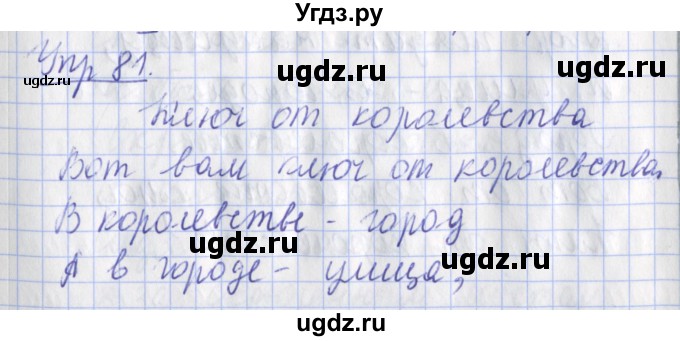 Угдз.ру
Упр 81.
Ключ от королевства
Вот вам ключ от королевства.
В королевстве - город
А в городе - улица,
ugdz.ru
ugdz.ru
ugdz.ru
ugdz.ru
ugdz.ru
ugdz.ru
ugdz.ru
ugdz.ru